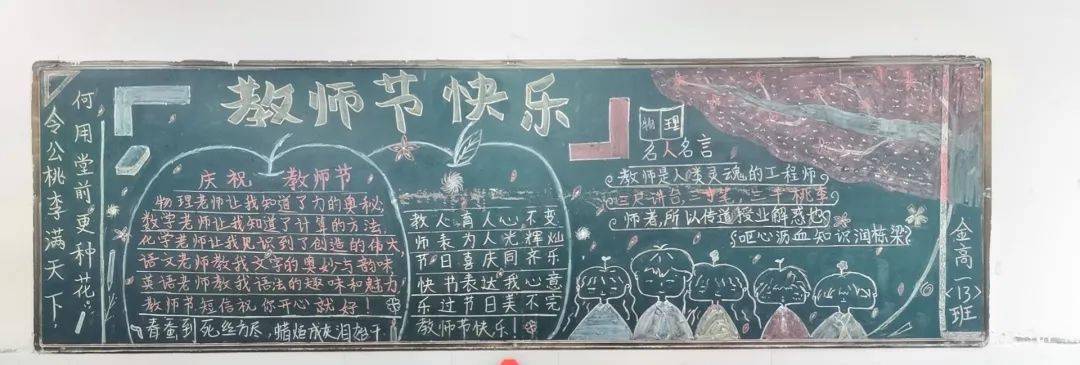 令公桃李满天下,
何用堂前更种花
教师节快乐
庆祝 教师节
物理老师让我知道了力的奥秘
数学老师让我知道了计算的方法,
化学老师让我见识到了创造的伟大,
语文老师教我文字的奥妙与韵味
英语老师教我语法的趣味和魅力
教师节短信祝你开心就好!
春蚕到死丝方尽,蜡炬成灰泪始干
教人育人心不变
师表为人光辉灿
节日喜庆同齐乐
快书表达我心意
乐过节日美不完
教师节快乐!
物理
名人名言
教师是人类灵魂的工程师
三尺讲台,三寸笔,三千桃李
师者,所以传道授业解惑也
呕心沥血知识润栋梁
金高<13>班